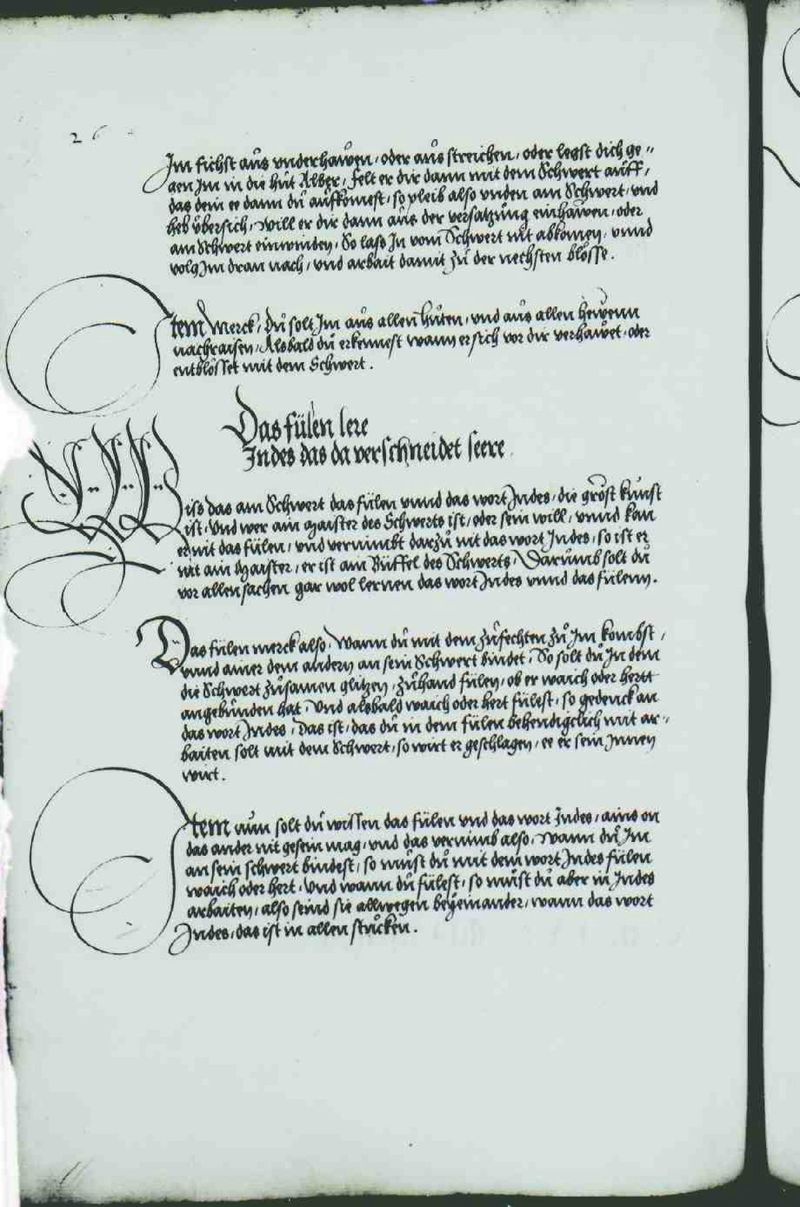 26
Im fichst aůs vnderhaẃen, oder aůs streichen, oder legst dich ge„
gen Im in die hůt Alber, felt er dir dann mit dem Schwert auff,
das dein ee dann dů aůfkomest, so pleib also vnden am Schwert, vnd
heb v̊bersich, Will er dir dann aůs der versatzůng einhaẃen, oder
am Schwert einwinden, So lass In vom Schwert nit abkomen, vnnd
volg Im dran nach, vnd arbait damit zů der nechsten blösse.
Item Merck, Dů solt Im aůs allen hůten, vnd aůs allen heẃenn
nachraisen, Alsbald dů erkennest wann er sich vor dir verhaẃet, oder
entblösset mit dem Schwert.
Das fůlen lere
Indes das da verschneidet seere
Wiss das am Schwert das fůlen vnnd das wort Indes, die gröst kůnst
ist, Vnd wer ain maister des Schwerts ist, oder sein will, vnnd kan
er nit das fůlen, vnd vernimbt darzů nit das wort Indes, so ist er
nit ain maister, er ist am Bůffel des Schwerts, Darůmb solt dů
vor allen sachen gar wol lernen das wort Indes vnnd das fůlenn.
Das fůlen merck also, Wann dů mit dem zůfechten zů Im kombst,
vnnd ainer dem andern an sein Schwert bindet, So solt dů In dem
die Schwert zůsamen glitzen, zůhand fůlen, ob er waich oder hertt
angebůnden hat, Vnd alsbald waich oder hert fůlest, so gedenck an
das wort Indes, Das ist, das dů in dem fůlen behendigclich mit ar„
baiten solt mit dem Schwert, so wirt er geschlagen, ee er sein Innen
wirt.
Item nůn solt dů wissen das fůlen vnd das wort Indes, ains on
das ander nit gesein mag, vnd das vernimb also, Wann dů Im
an sein schwert bindest, so můst dů mit dem wort Indes fůlen
waich oder hert, Vnd wann dů fůlest, so můst dů aber in Indes
arbaiten, also seind sie allwegen beẏeinander, wann das wort
Indes, das ist in allen stůcken.